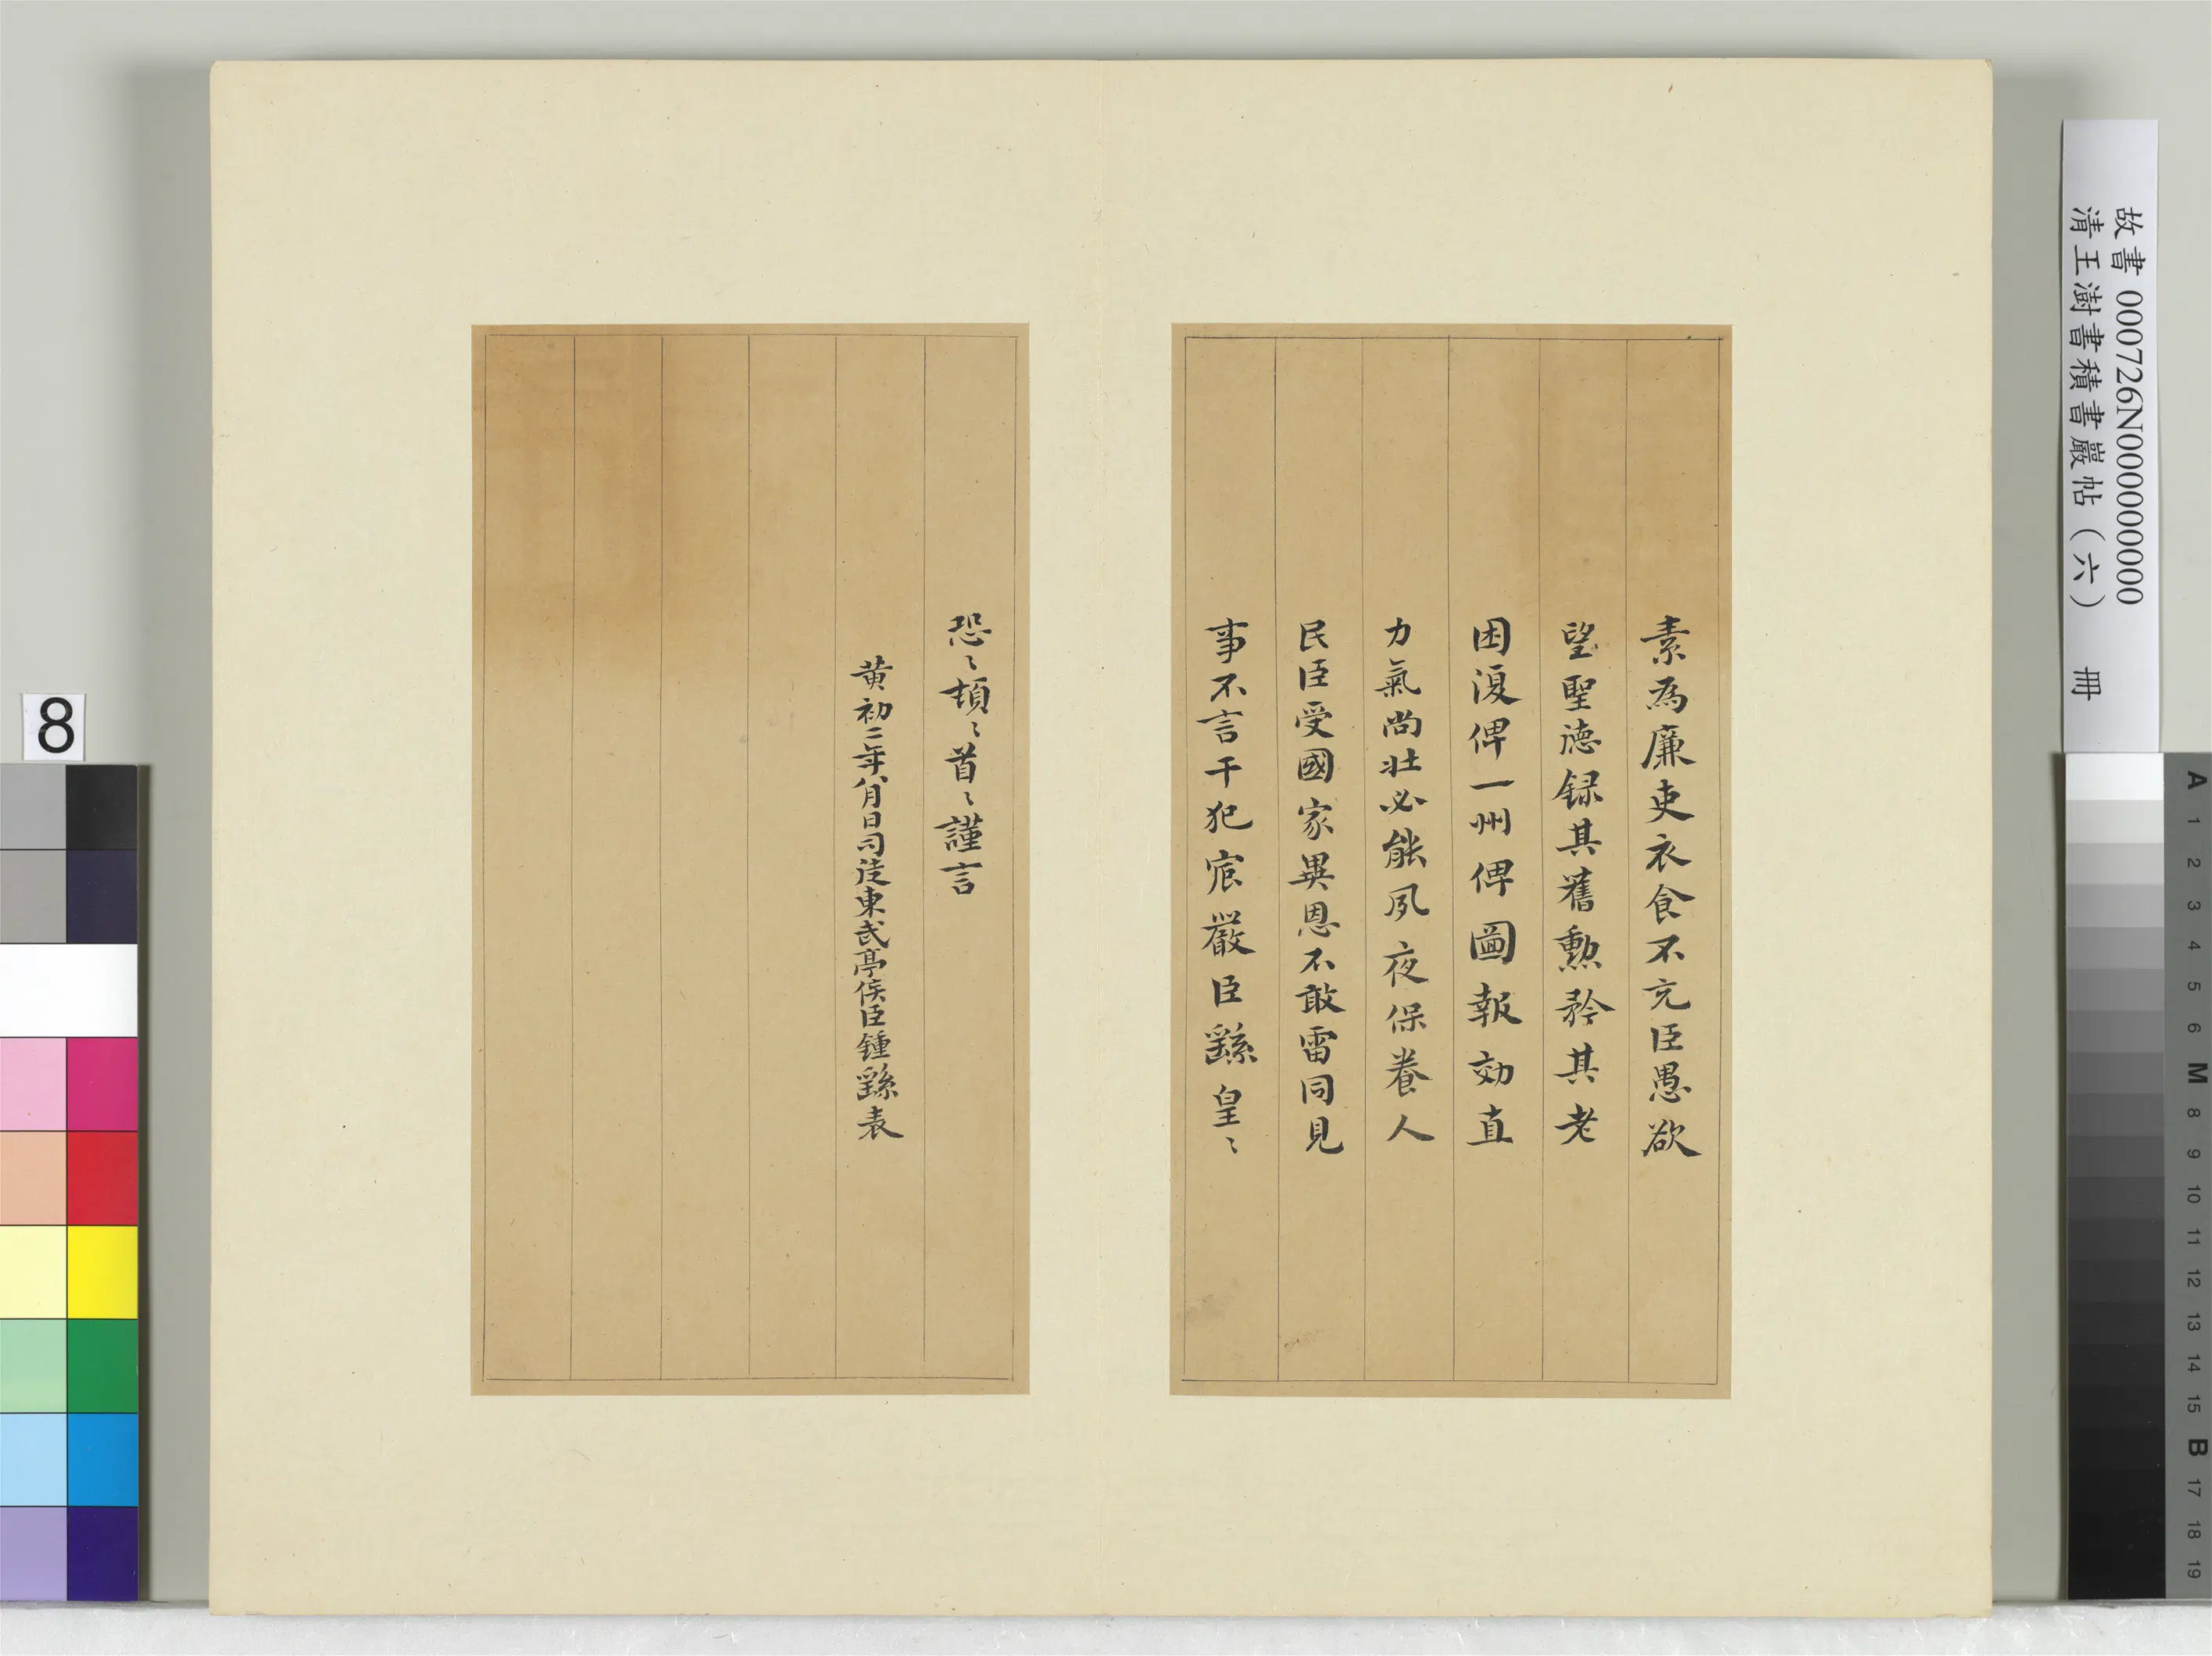 素為廉吏衣食不充臣愚欲
望聖德録其舊勲矜其老
困復俾一州俾圖報効直
力氣尚壯必能夙夜保養人
民臣受國家異恩不敢雷同見
事不言干犯宸嚴臣繇皇〻
恐〻頓〻首〻謹言
黄初二年八月日司徒東武亭侯臣鍾繇表
故書 000726N000000000
清王澍書積書巖帖（六） 冊
8
A
1
2
3
4
5
6
M
8
9
10
11
12
13
14
15
B
17
18
19